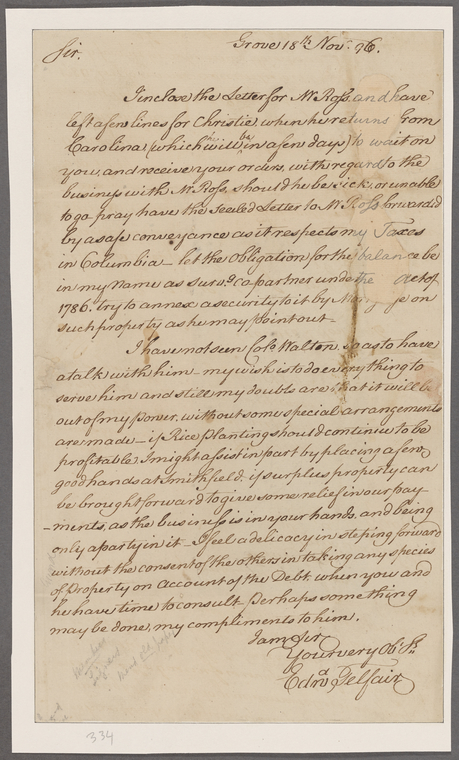 Grove 18th Novr. 96.
Sir.
I inclose the Letter for Mr. Ross, and have
left a few lines for Christie, when he returns from
Carolina (which will be in a few days) to wait on
you, and receive your orders, with regard to the
business with Mr. Ross, should he be sick, or unable
to go pray have the Sealed Letter to Mr. Ross forwarded
by a safe conveyance as it respects my Taxes
in Columbia — let the Obligation for the balance be
in my Name as survg. copartner under the act of
1786. try to annex a security to it by Mortgage on
such property as he may point out —
I have not seen Colo. Walton, so as to have
a talk with him — my wish is to do every thing to
serve him and still my doubts are that it will be
out of my power, without some special arrangements
are made — if Rice Planting should continue to be
profitable I might assist in part by placing a few
good hands at Smithfield, if surplus property can
be brought forward to give some relief in our pay-
-ments, as the business is in your hands, and being
only a party in it — I feel a delicacy in steping forward
without the consent of the others in taking any species
of Property on Account of the Debt when you and
he have time to consult. Perhaps something
may be done, my compliments to him.
I am Sir
Your very Ob. St.
Edwd. Telfair
334